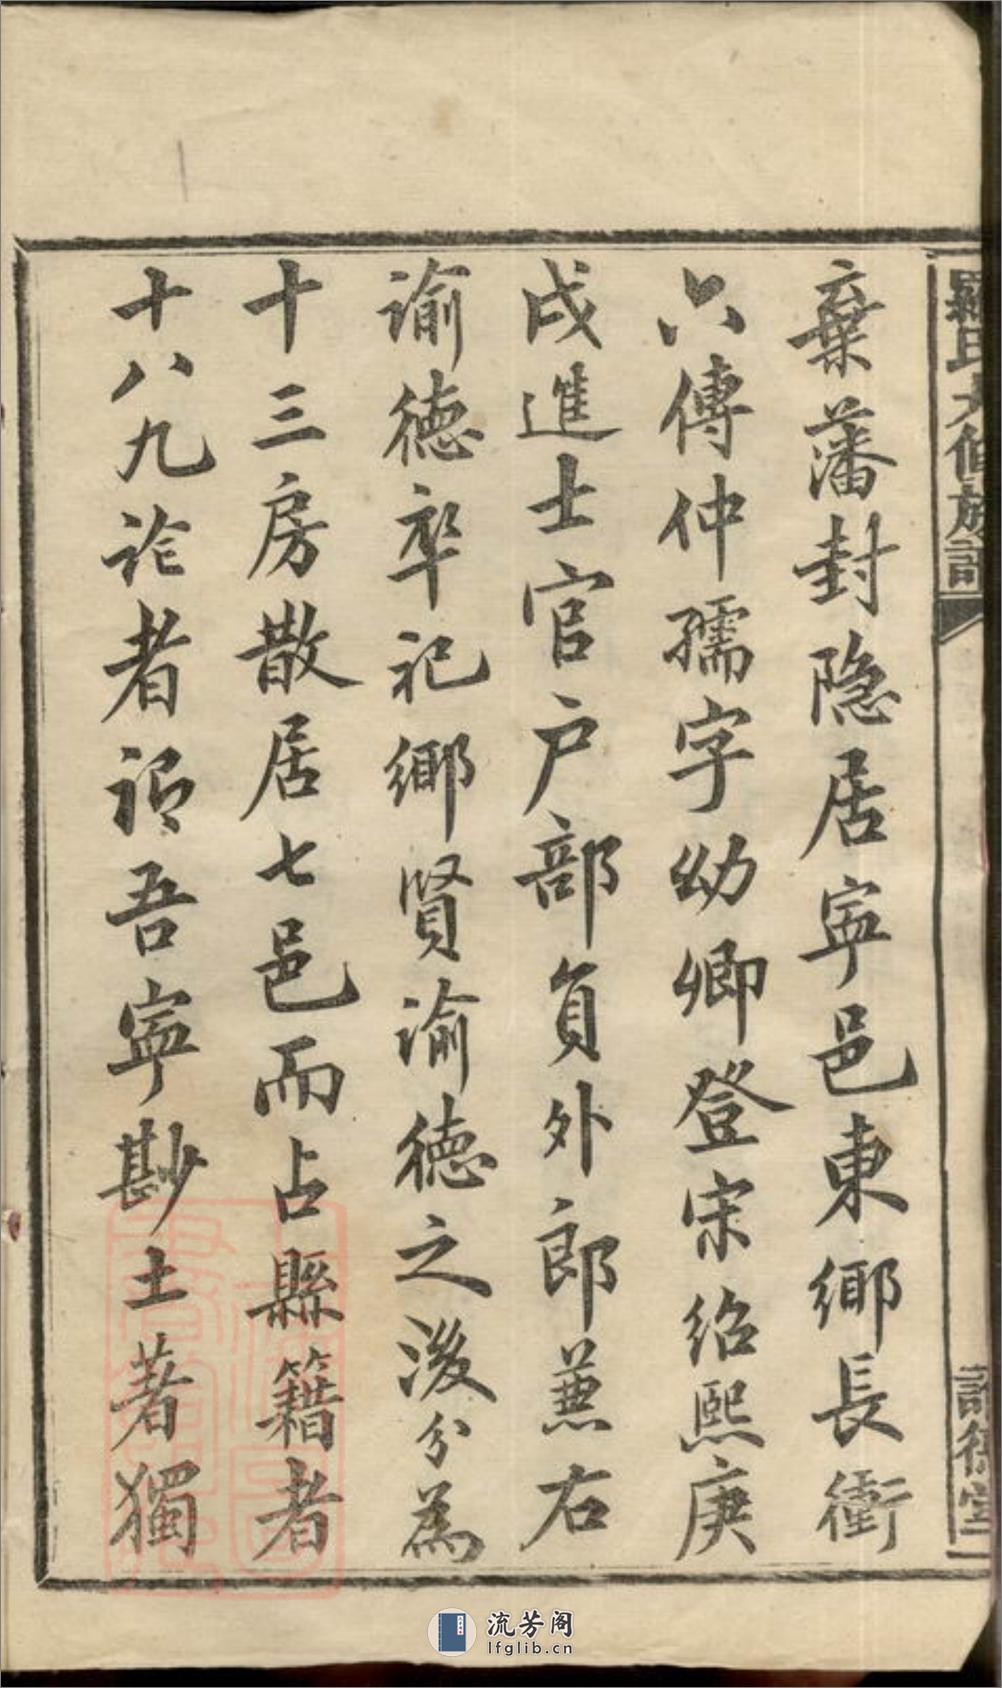 棄藩封隐居寕邑東鄉長衝
六傳仲孺字幼卿登宋绍熙庚
戌進士官户部負外郎兼右
諭德卒祀鄉賢諭德之後分為
十三房散居七邑而占縣籍者
十八九论者谓吾寕尠土著獨
羅氏大修族譜
諭德堂
流芳阁
lfglib.cn